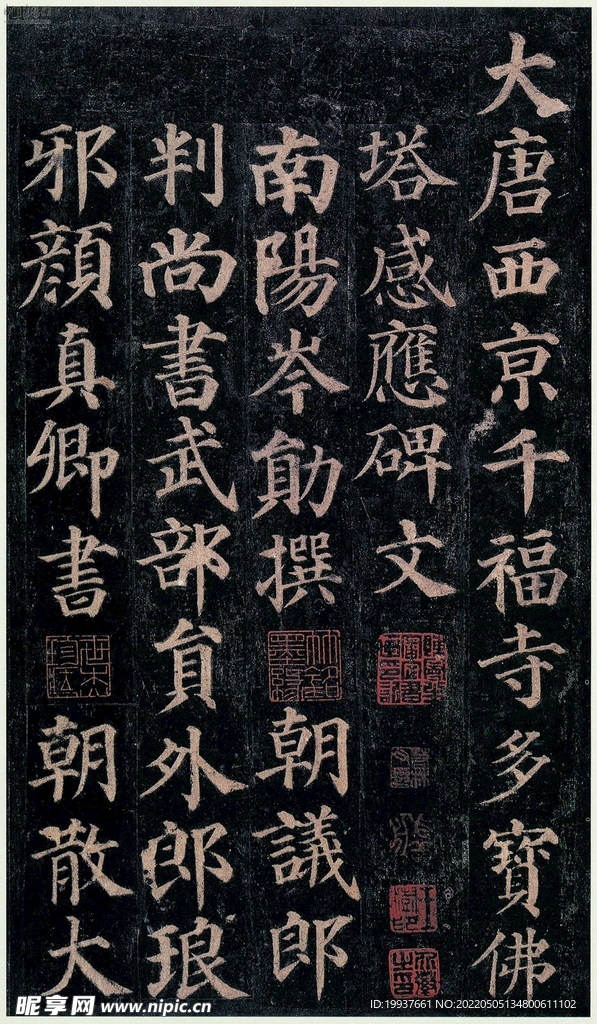 大唐西京千福寺多寶佛
塔感應碑文
南陽岑勛撰 朝議郎
判尚書武部員外郎琅
邪顏真卿書 朝散大
昵享网 www.nipic.cn
ID:19937661 NO:20220505134800611102